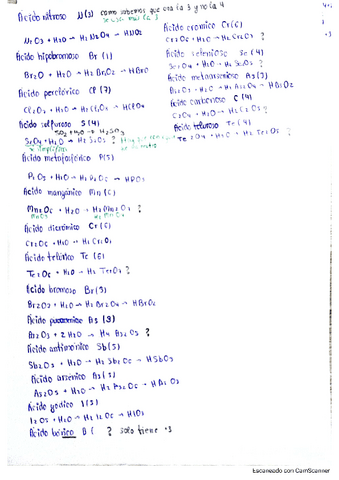 Ácido nitroso N(3) como sabemos que era la 3 y no la 4
N2O3 + H2O → H2N2O4 → HNO2
Ácido hipobromoso Br (1)
Br2O + H2O → H2Br2O2 → HBrO
Ácido perclórico Cl (7)
Cl2O7 + H2O → H2Cl2O8 → HClO4
Ácido sulfuroso S (4)
SO2 + H2O → H2SO3
S2O4 + H2O → H2S2O5 ?
Ácido metafosfórico P(5)
P2O5 + H2O → H2P2O6 → HPO3
Ácido mangánico Mn (6)
Mn2O6 + H2O → H2Mn2O7 ?
MnO3
Ácido dicrómico Cr (6)
Cr2O6 + H2O → H2Cr2O7
Ácido telúrico Te (6)
Te2O6 + H2O → H2Te2O7 ?
Ácido bromoso Br (3)
Br2O3 + H2O → H2Br2O4 → HBrO2
Ácido As (3)
As2O3 + 2H2O → H4As2O5 ?
Ácido antimónico Sb(5)
Sb2O5 + H2O → H2Sb2O6 → HSbO3
Ácido arsénico As(5)
As2O5 + H2O → H2As2O6 → HAsO3
Ácido yodico I (5)
I2O5 + H2O → H2I2O6 → HIO3
Ácido bórico B ( ? solo tiene +3
Ácido crómico Cr(6)
Cr2O6 + H2O → H2Cr2O7 ?
Ácido selenioso Se (4)
Se2O4 + H2O → H2Se2O5 ?
Ácido metaarsenioso As (3)
As2O3 + H2O → H2As2O4 → HAsO2
Ácido carbonoso C (4)
C2O4 + H2O → H2C2O5 ?
Ácido teluroso Te (4)
Te2O4 + H2O → H2Te2O5 ?
Escaneado con CamScanner